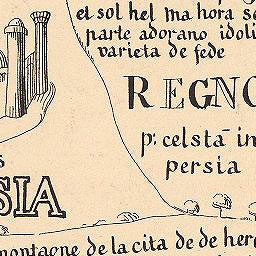 el sol hel ma hora se
parte adorano idoli
varieta de fede
REGNO
p: celsta in
persia
SIA
montagne de la cita de de here